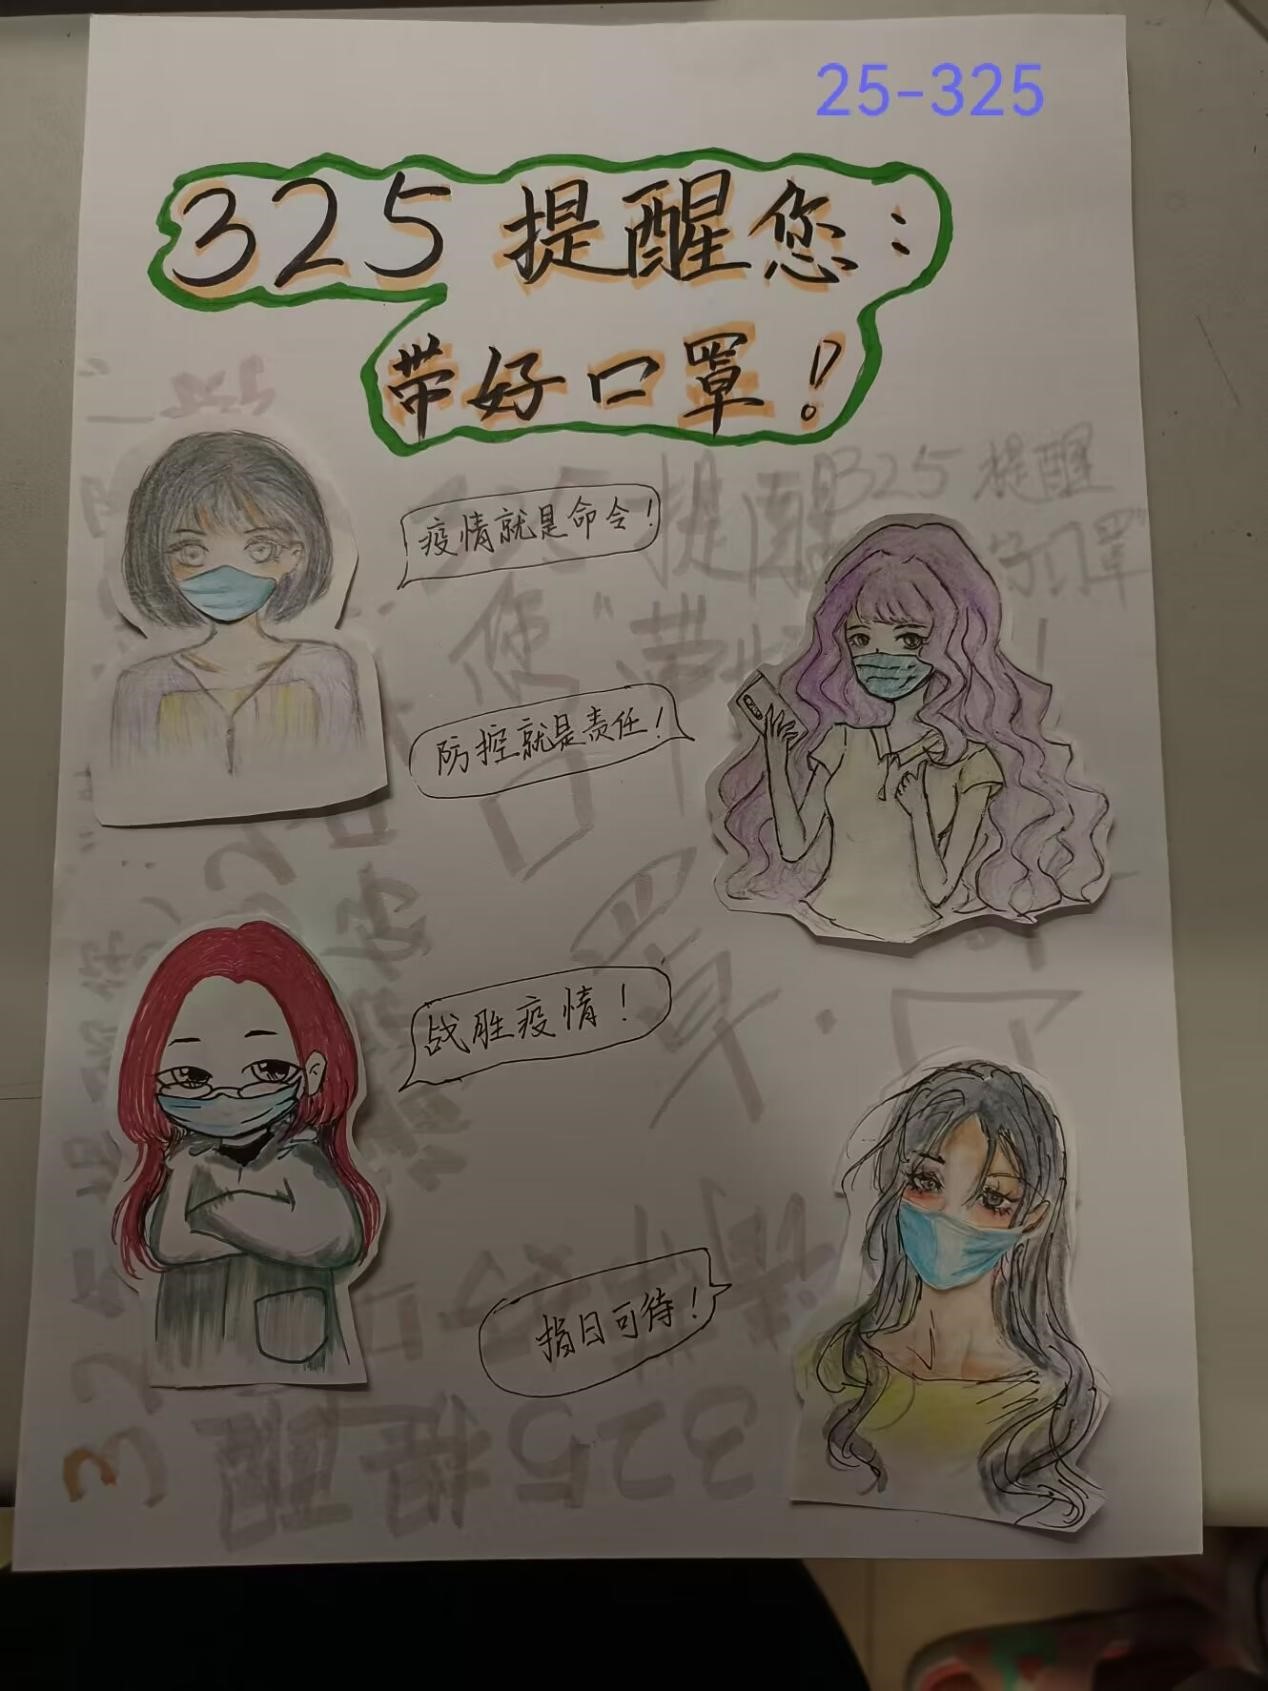 25-325
325提醒您：
带好口罩！
疫情就是命令！
325提醒
防控就是责任！
战胜疫情！
指日可待！